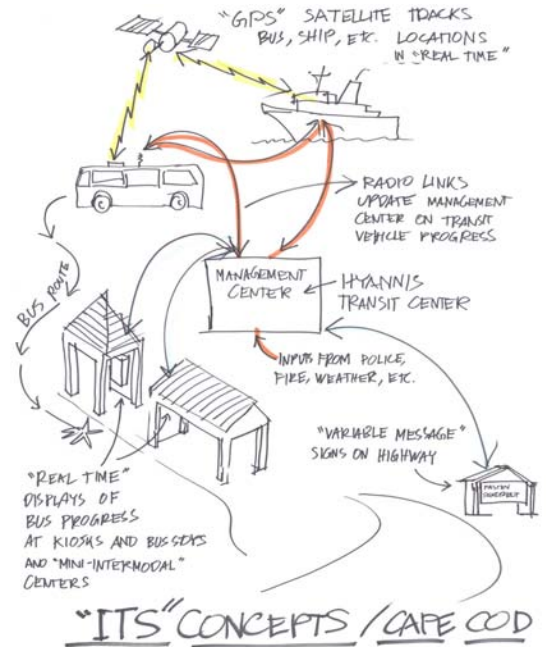 "GPS" SATELLITE TRACKS
BUS, SHIP, ETC. LOCATIONS
IN "REAL TIME"
RADIO LINKS
UPDATE MANAGEMENT
CENTER ON TRANSIT
VEHICLE PROGRESS
MANAGEMENT
CENTER
HYANNIS
TRANSIT CENTER
BUS ROUTE
INPUTS FROM POLICE,
FIRE, WEATHER, ETC.
"VARIABLE MESSAGE"
SIGNS ON HIGHWAY
"REAL TIME"
DISPLAYS OF
BUS PROGRESS
AT KIOSKS AND BUS STOPS
AND "MINI-INTERMODAL"
CENTERS
"ITS" CONCEPTS / CAPE COD